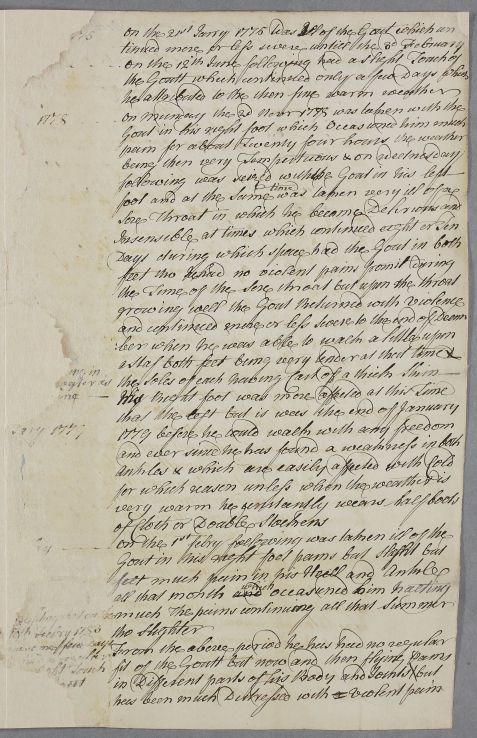 on the 21st Janry 1775 was Ill of the Gout which con
tinued more or less severe untill the 3d February
on the 12th June following had a slight Touch of
the Goutt which continued only a few Days which
he attributed to the then fine warm weather
on Munday the 2d Novr 1778 was taken with the
1778
Gout in his right foot which Occasioned him much
pain for about Twenty four hours the weather
being then very Tempestuous & on Wednesday
following was seized with the Goat in his left
foot and at the same time was taken very ill of a
Sore Throat in which he become Delirious and
Insensible at times which continued eight or Ten
Days during which space had the Gout in both
feet tho he had no violent pains from it during
the Time of the Sore throat but upon the throat
growing well the Gout Returned with Violence
and continued more or less severe to the end of Decem
ber when he was able to walk a little upon
a staf both feet being very tender at that time &
the soles of each having cast of a thick Skin
the right foot was more affected at this Time
than the Left but it was the end of January
Janry 1779
1779 before he could walk with any freedom
and ever since he has found a weakness in both
Ankles & which are easily affected with Cold
for which reason unless when the weather is
very warm he constantly wears half boots
of Cloth or Double Stockens
on the 1st Febry following was taken ill of the
Gout in his right foot pains but slight but
felt much pain in his Heell and Ankle
all that month which occasioned him halting
much The pains continuing all that Summer
tho Slighter
From the above period he has had no regular
fit of the Goutt but now and then flying Pains
in Different parts of his Body and Joints but
has been much Distressed with a violent pain